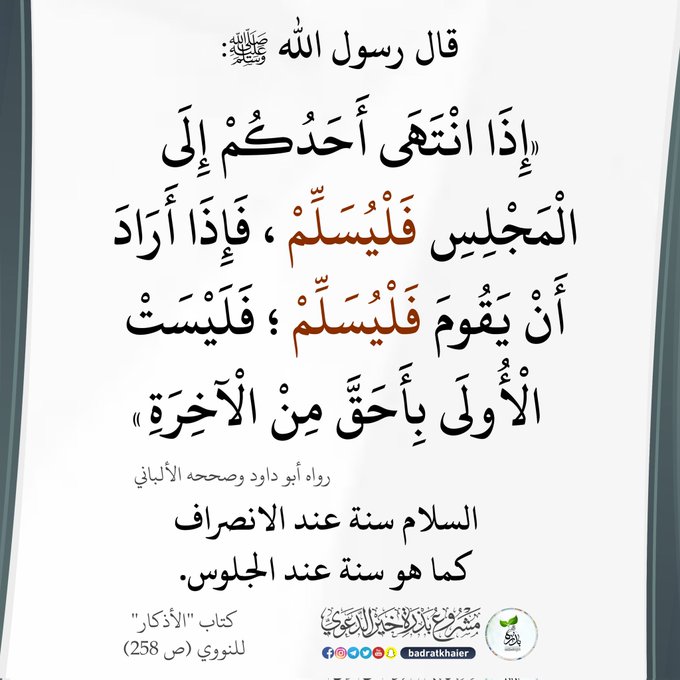 قال رسول الله ﷺ:
«إِذَا انْتَهَى أَحَدُكُمْ إِلَى
الْمَجْلِسِ فَلْيُسَلِّمْ ، فَإِذَا أَرَادَ
أَنْ يَقُومَ فَلْيُسَلِّمْ ؛ فَلَيْسَتْ
الْأُولَى بِأَحَقَّ مِنْ الْآخِرَةِ»
رواه أبو داود وصححه الألباني
السلام سنة عند الانصراف
كما هو سنة عند الجلوس.
كتاب "الأذكار"
للنووي (ص 258)
مشروع بذرة خير الدعوي
badratkhaier
بذرة